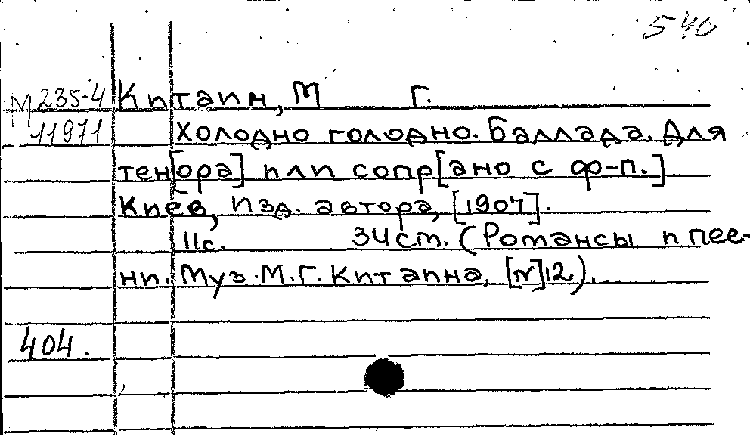 540
М 235-4 Китаин, М Г.
11971 Холодно голодно. Баллада. Для
тен[ора] или сопр[ано с ф-п.]
Киев, Изд. автора, [1907].
11с. 34см. (Романсы и пес-
ни. Муз. М. Г. Китаина, [№]12).
404.